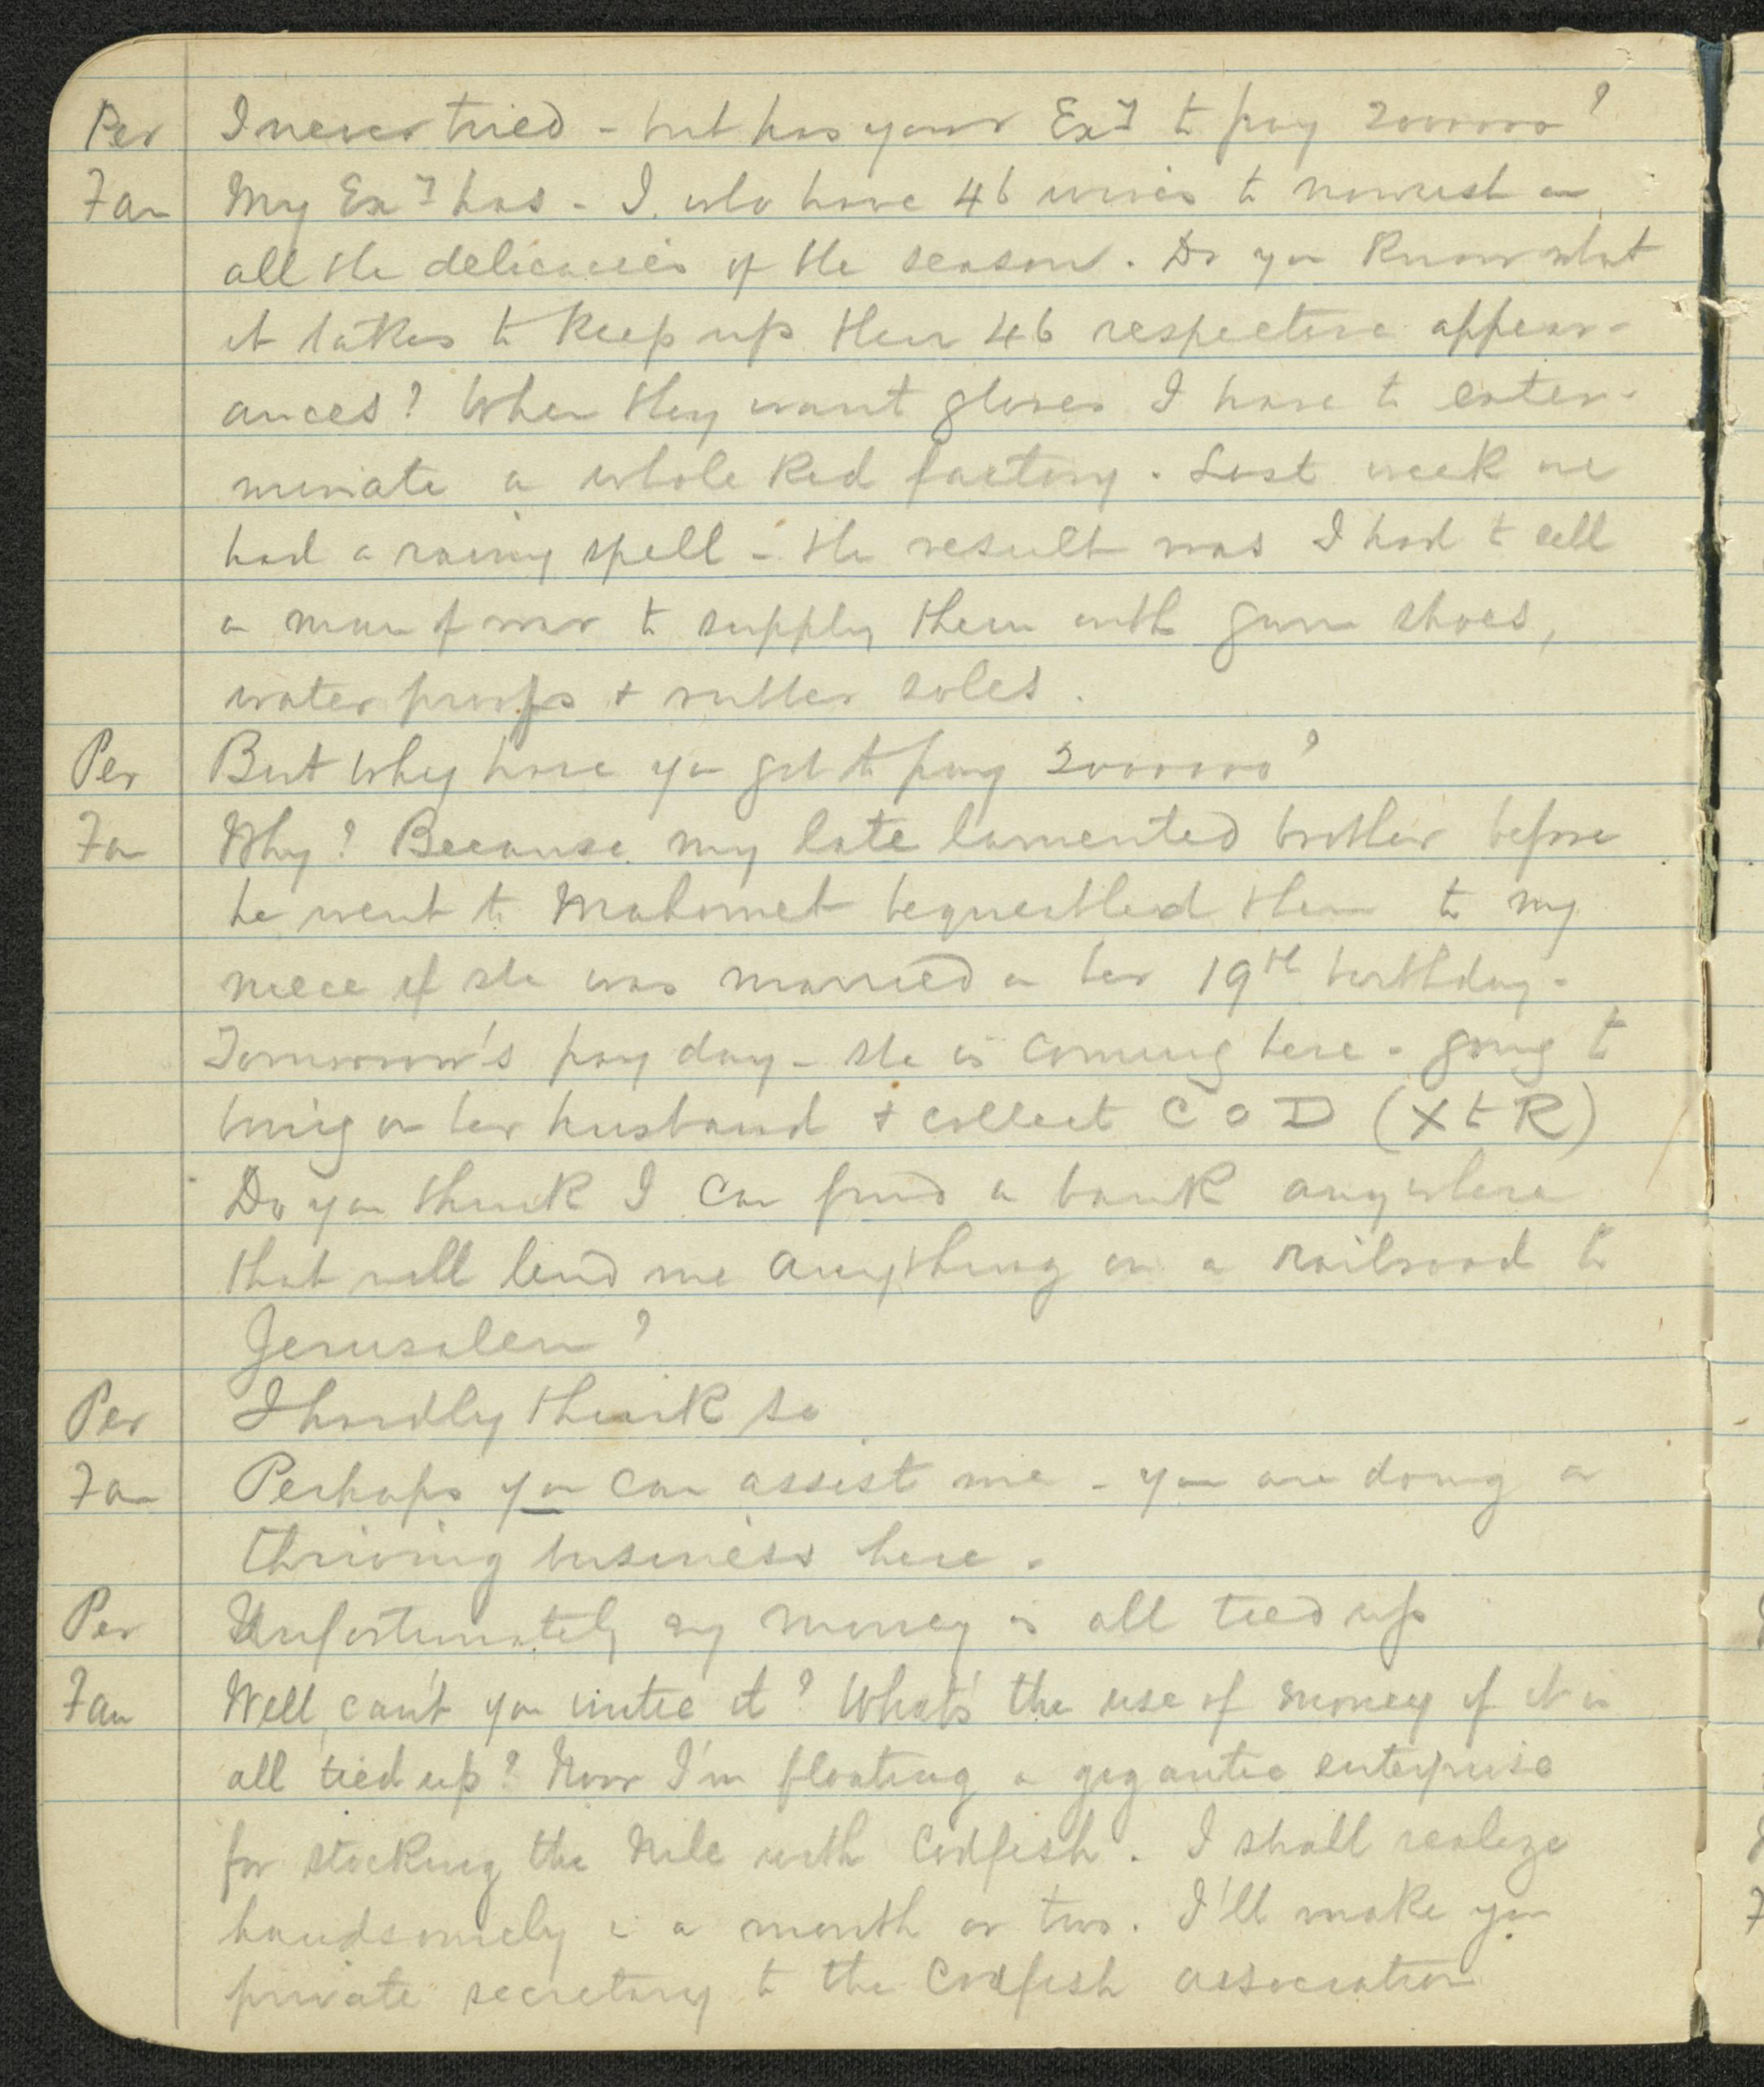 Per I never tried - but has your Ex^y to pay 2000000?
Fan My Ex^y has - I. who have 46 wives to nourish on
all the delicacies of the season. Do you know what
it takes to keep up their 46 respective appear-
ances? When they want gloves I have to exter-
minate a whole Kid factory. Last week we
had a rainy spell - the result was I had to sell
a man of war to supply them with gum shoes,
water proofs + rubber soles.
Per But why have you got to pay 2000000?
Fa Why? Because my late lamented brother before
he went to Mahomet bequeathed them to my
niece if she was married on her 19th birthday.
Tomorrow's pay day - she is coming here - going to
bring on her husband + collect C O D (X t R)
Do you think I can find a bank anywhere
that will lend me anything on a railroad to
Jerusalem?
Per I hardly think so
Fan Perhaps you can assist me - you are doing a
thriving business here.
Per Unfortunately my money is all tied up
Fan Well, can't you untie it? What's the use of money if it is
all tied up? Now I'm floating a gigantic enterprise
for stocking the Nile with Codfish. I shall realize
handsomely in a month or two. I'll make you
private secretary to the Codfish association